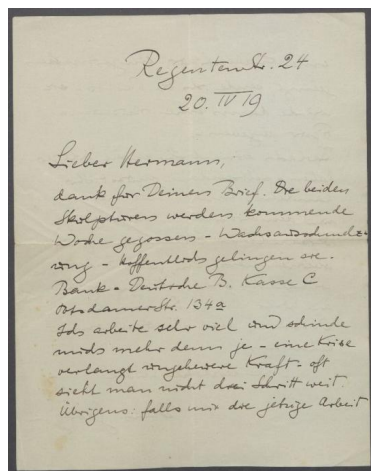 Regentenstr. 24
20. IV 19
Lieber Hermann,
dank für Deinen Brief. Die beiden
Skulpturen werden kommende
Woche gegossen - Wachsausschmelz-
ung - Hoffentlich gelingen sie.
Bank - Deutsche B. Kasse C
Potsdamerstr. 134a
Ich arbeite sehr viel und schinde
mich mehr denn je - eine Krise
verlangt ungeheuere Kraft - oft
sieht man nicht drei Schritt weit.
Übrigens: falls mir die jetzige Arbeit